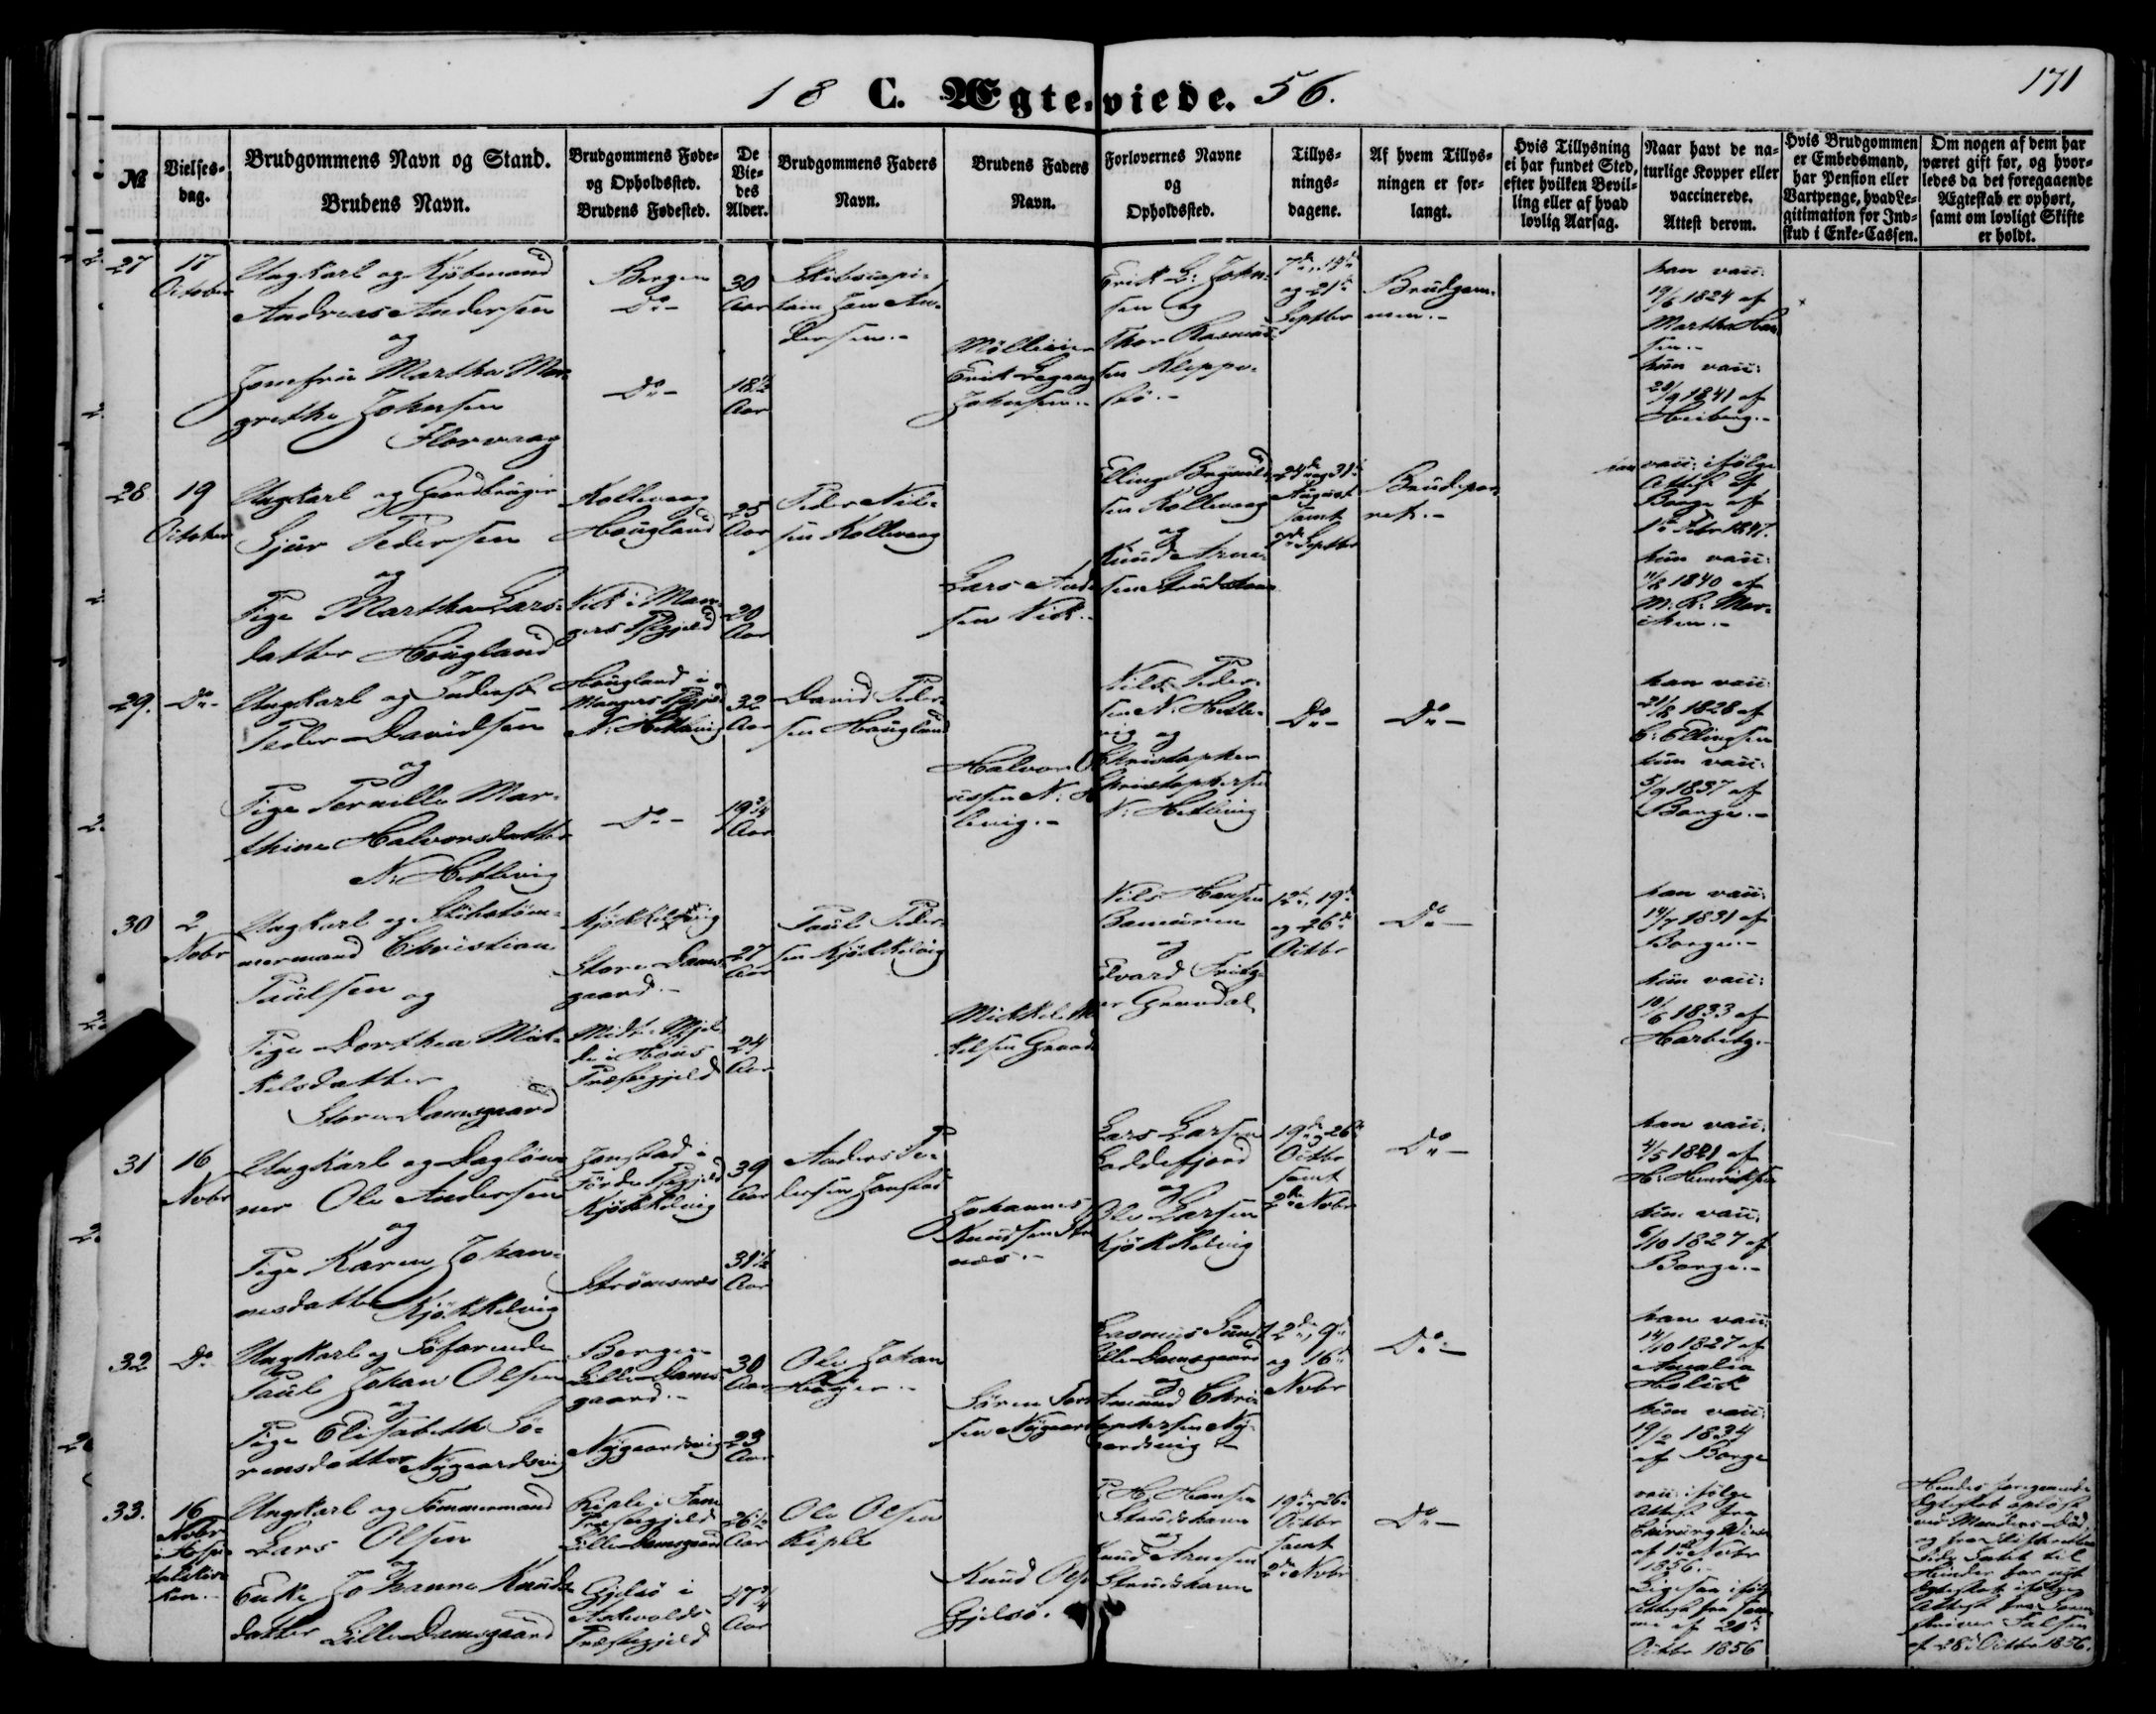 18 C. Ægte-viede. 56.
171
№
Vielses-dag.
Brudgommens Navn og Stand.
Brudens Navn.
Brudgommens Føde- og Opholdssted.
Brudens Fødested.
De Vie-des Alder.
Brudgommens Faders Navn.
Brudens Faders Navn.
Forlovernes Navne og Opholdssted.
Tillys-nings-dagene.
Af hvem Tillys-ningen er for-langt.
Hvis Tillysning ei har fundet Sted, efter hvilken Bevil-ling eller af hvad lovlig Aarsag.
Naar havt de na-turlige Kopper eller vaccinerede. Attest derom.
Hvis Brudgommen er Embedsmand, har Pension eller Vartpenge, hvad Le-gitimation for Ind-skud i Enke-Cassen.
Om nogen af dem har været gift før, og hvor-ledes da det foregaaende Ægteskab er ophørt, samt om lovligt Skifte er holdt.
27
17 October
Ungkarl og Kjøbmand
Andreas Andersen
og
Jomfru Martha Mar-
grethe Johnsen
Florvaag
Bergen
Do-
Do-
30 Aar
18½ Aar
Skibscapi-
tain Jan An-
dersen.-
Erik Legang
Johnsen.-
Erik L: John-
sen og
Thor Rasmus-
sen Kleppe-
stø.-
7de, 14de
og 21de
Septbr
Brudgom-
men.-
han vacc:
19/6 1824 af
Martha Han-
sen.-
hun vacc:
28/9 1841 af
Heiberg.-
28
19 October
Ungkarl og Gaardbruger
Sjur Pedersen
og
Pige Martha Lars-
datter Hougland
Kollevaag
Hougland
Vik i Man-
gers Pgjeld
25 Aar
20 Aar
Peder Nil-
sen Kollevaag
Lars And
sen Vik.-
Elling
sen Kollevaag
og
Knud Arne-
sen Strudshavn
24de og 31te
August
samt
7de Septbr
Brudepar-
ret.-
han vacc: ifølge
Attest af
Borge af
1ste Febr 1847.
hun vacc:
11/8 1840 af
M. R. Mar-
29.
Do-
Ungkarl og Inderst
Peder Davidsen
og
Pige Pernille Mar-
thine Halvorsdatter
N: Hetlevig
Hougland i
Mangers Pgjeld
N: Hetlevig
Do-
32 Aar
19¾ Aar
David Peder-
sen Hougland
Halvor
ussen N: H
levig.-
Nils Peder-
sen N: Hetle-
vig og
Christopher
Christophersen
N: Hetlevig
Do-
Do-
han vacc:
21/8 1828 af
C: Ellingsen
hun vacc:
5/9 1837 af
Borge.-
30
2 Nobr
Ungkarl og Skibstøm-
mermand Christian
Paulsen og
Pige Dorthea Mik-
kelsdatter
Store Damsgaard
Kjøkkelvig
Store Dams-
gaard.-
Midt Mjel-
de i Hous
Præstegjeld
27 Aar
24 Aar
Paul Peder-
sen Kjøkkelvig
Mikkel Mi
kelsen
Nils Hansen
og
Edvard
12te, 19de
og 26de
Octbr
Do-
han vacc:
14/7 1831 af
Borge.-
hun vacc:
10/6 1833 af
Harbitz.-
31
16 Nobr
Ungkarl og Dagløn-
ner Ole Andersen
og
Pige Karen Johan-
nesdatter Kjøkkelvig
Jonstad i
Førde Pgjeld
Kjøkkelvig
Strømsnæs
39 Aar
31½ Aar
Anders Pe-
dersen Jonstad
Johannes
Knudsen Strø
næs.-
Lars Larsen
Loddefjord
og
Ole Larsen
Kjøkkelvig
19de og 26de
Octbr
samt
2den Nobr
Do-
han vacc.
4/5 1821 af
H: Henriksen
hun vacc.
6/10 1827 af
Borge.-
32
Do
Ungkarl og Søfarende
Paul Johan Olsen
og
Pige Elisabeth Sø-
rensdatter Nygaardsvig
Bergen
Lille Dams-
gaard.-
Nygaardsvig
30 Aar
23 Aar
Ole Johan
Søren
sen Nygaard
Rasmus Sundt
Lille Damsgaard
og
Amund Chri-
stophersen Ny-
gaardsvig.-
2den, 9de
og 16de
Nobr
Do-
han vacc:
14/10 1827 af
Amalia
Holck
hun vacc:
1834
af Borge
33.
16 Nobr
i Hospi-
talskir-
ken.-
Ungkarl og Tømmermand
Lars Olsen
og
Enke Johanna Knuds-
datter Lille Damsgaard
Riple i Fane
Præstegjeld
Lille Damsgaard
Gjelsø i
Askevolds
Præstegjeld
26½ Aar
47¾ Aar
Ole Olsen
Riple
Knud Ols
Gjelsø.
P. H. Hansen
Strudshavn
og
Knud Arnesen
Strudshavn
19de, 26de
Octbr
samt
2den Nobr
Do-
vacc: ifølge
Attest fra
Chirurg
af 1ste Nobr
1856.-
Ligesaa ifølge
Attest fra sam-
me af 20de
Octbr 1856
Hendes foregaaende
Ægteskab opløst
ved Mandens Død,
og fra Skifterettens
Side Intet til
Hinder for nyt
Ægteskab ifølge
Attest fra Soren-
skriver Falsen
af 28de Octbr 1856.